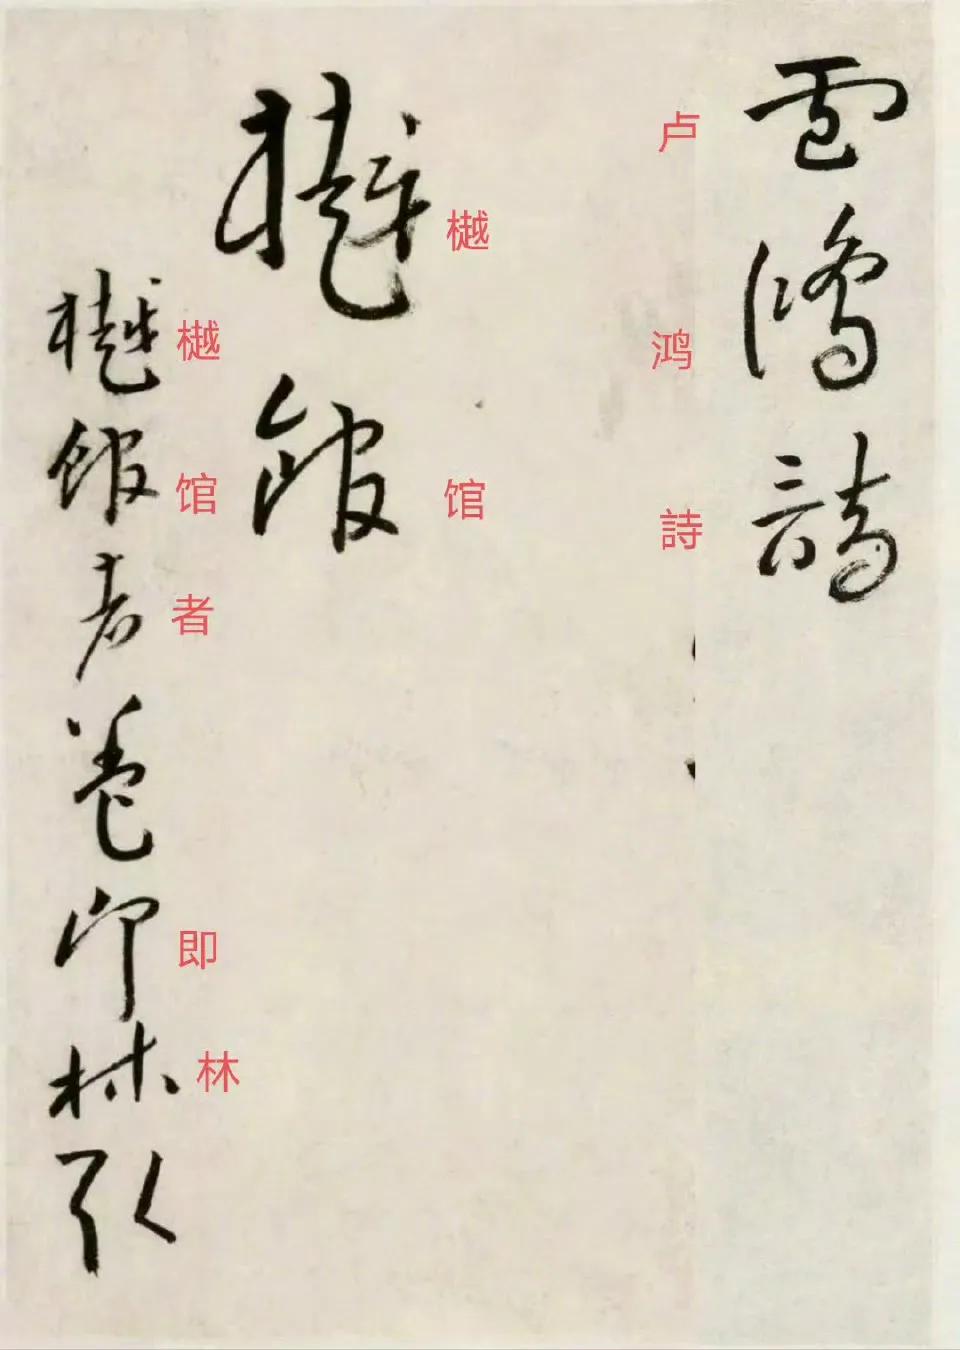 盧鴻詩
卢鸿詩
樾馆
樾館
樾馆者即林
樾館者蓋即林取